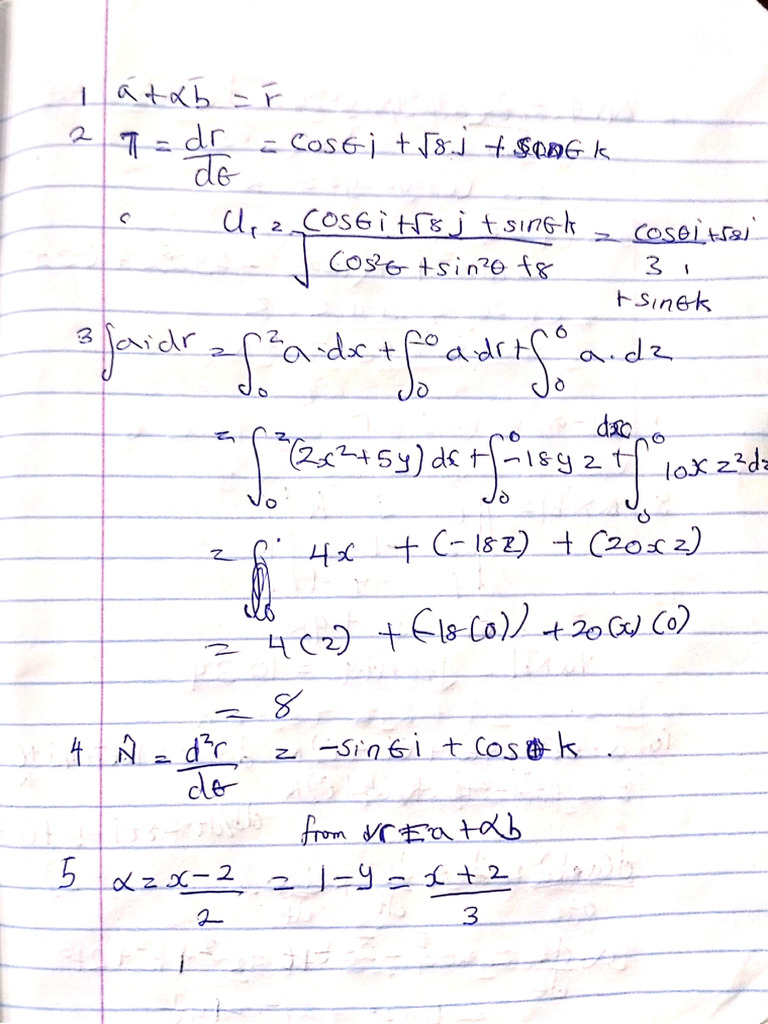 1 ā + αb̄ = r̄
2 T = dr/dθ = cosθi + √8 j + sinθ k
U₁ = cosθi + √8 j + sinθk / √cos²θ + sin²θ + 8 = cosθi + √8j / 3
+ sinθk
3 ∫a·dr = ∫₀² a·dx + ∫₀⁰ a·dr + ∫₀⁰ a.dz
= ∫₀² (2x² + 5y) dx + ∫₀⁰ -18yz + ∫₀⁰ 10xz² dz
= 4x + (-18z) + (20xz)
= 4(2) + (-18(0)) + 20(x)(0)
= 8
4 N̂ = d²r/dθ = -sinθi + cosθ k .
from r = a + αb
5 α = x-2/2 = 1-y = x+2/3